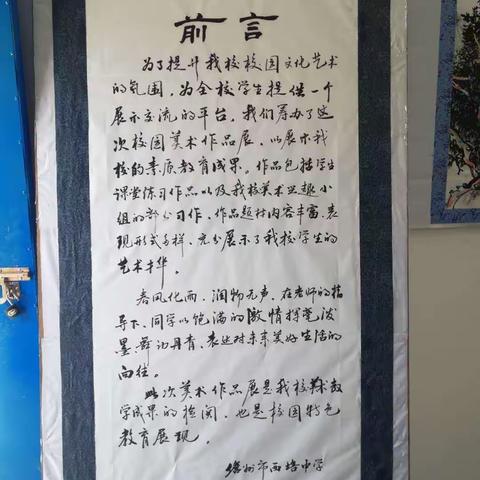 前言
为了提升我校校园文化艺术
的氛围，为全校学生提供一个
展示交流的平台，我们筹办了这
次校园美术作品展，以展示我
校的素质教育成果。作品包括学生
课堂练习作品以及我校美术兴趣小
组的部分习作，作品题材内容丰富，表
现形式多样，充分展示了我校学生的
艺术才华。
春风化雨，润物无声，在老师的指
导下，同学以饱满的激情挥毫泼
墨，舞动丹青，表达对未来美好生活的
向往。
此次美术作品展是我校美术教
学成果的检阅，也是校园特色
教育展现。
徐州市西培中学